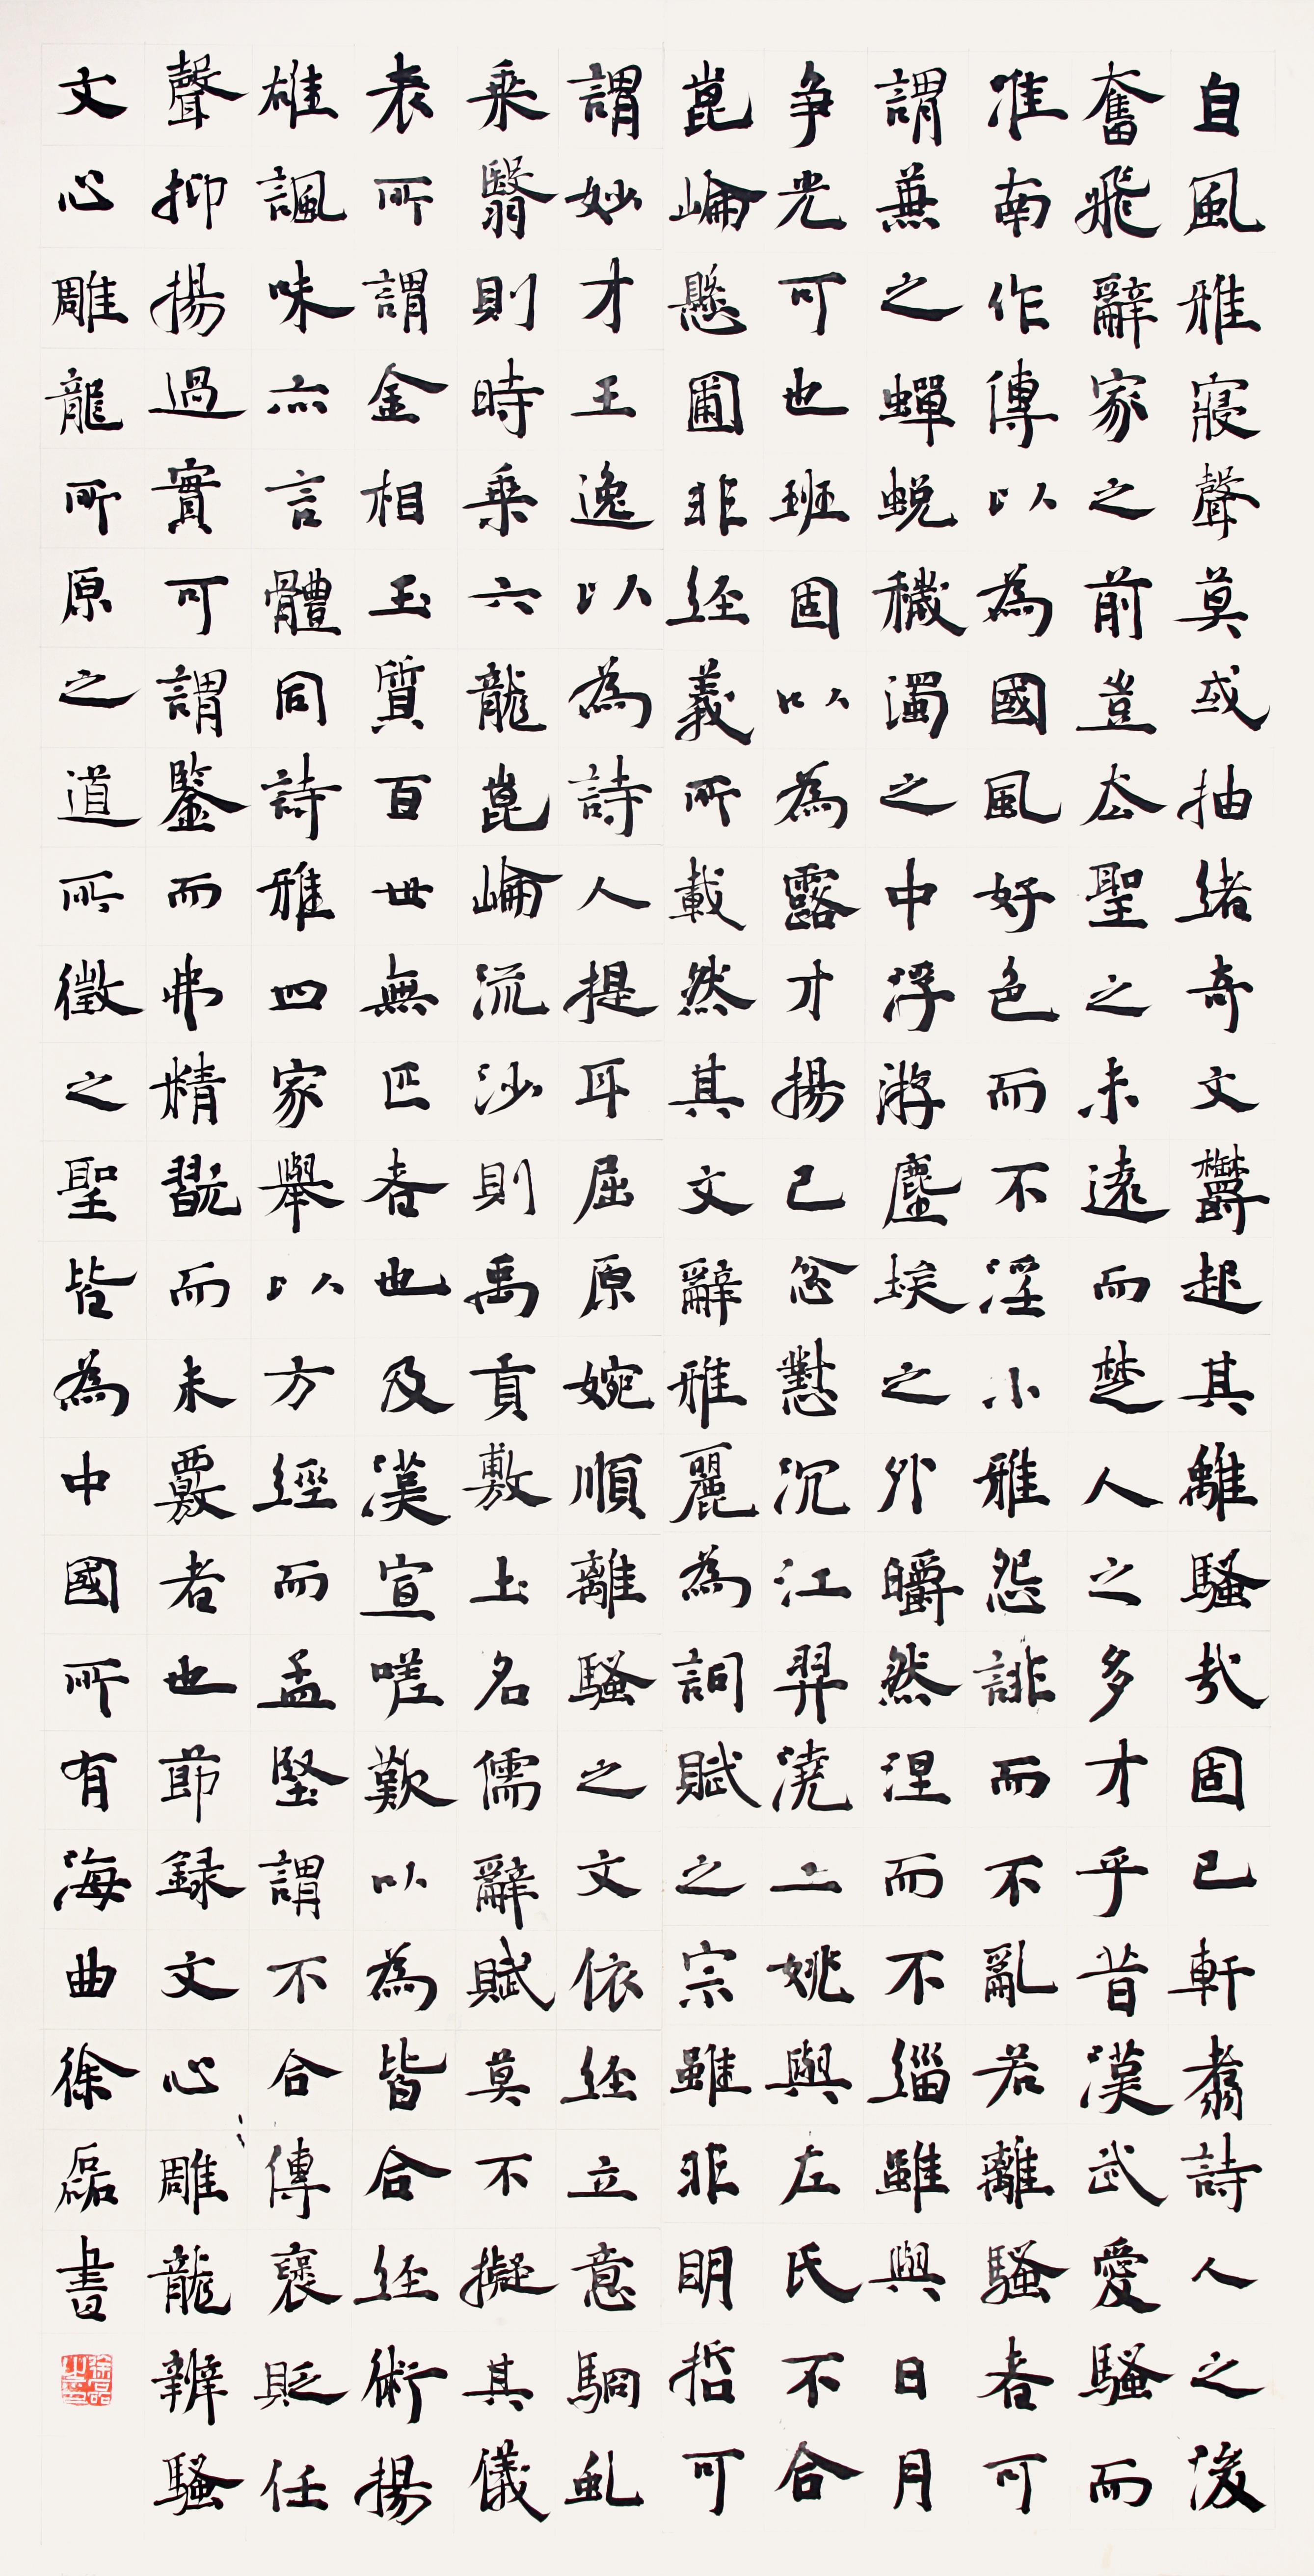 自風雅寢聲莫或抽緒奇文欝起其離騷哉固已軒翥詩人之後
奮飛辭家之前豈去聖之未遠而楚人之多才乎昔漢武愛騷而
淮南作傳以為國風好色而不淫小雅怨誹而不亂若離騷者可
謂蕪之蟬蛻穢濁之中浮游塵埃之外皭然涅而不緇雖與日月
爭光可也班固以為露才揚己忿懟沉江羿澆二姚與左氏不合
崑崙懸圃非經義所載然其文辭雅麗為詞賦之宗雖非明哲可
謂妙才王逸以為詩人提耳屈原婉順離騷之文依經立意駟虬
乘翳則時乘六龍崑崙流沙則禹貢敷土名儒辭賦莫不擬其儀
表所謂金相玉質百世無匹者也及漢宣嗟歎以為皆合經術揚
雄諷味亦言體同詩雅四家舉以方經而孟堅謂不合傳褒貶任
聲抑揚過實可謂鑒而弗精翫而未覈者也節錄文心雕龍辨騷
文心雕龍所原之道所徵之聖皆為中國所有海曲徐磊書